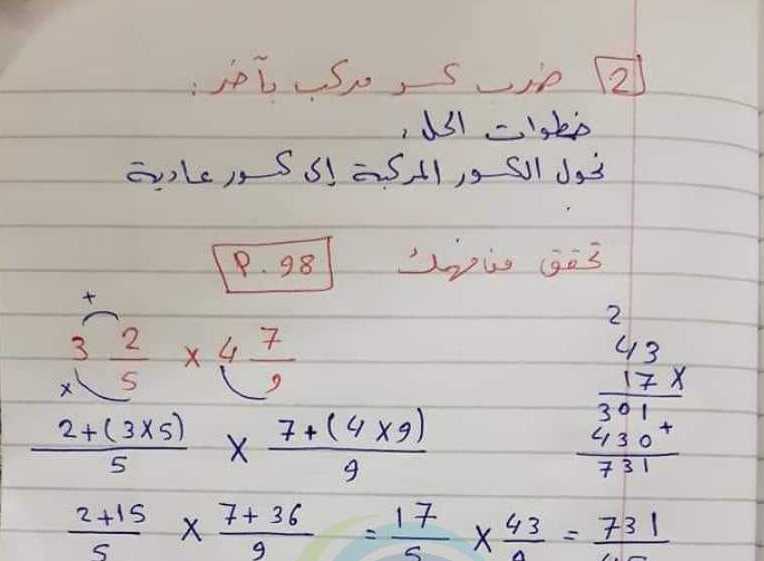 2 ضرب كسر مركب بآخر:
خطوات الحل،
نحول الكسور المركبة إلى كسور عادية
تحقق من فهمك P. 98
3 2/5 × 4 7/9
+
×
2+(3×5)/5 × 7+(4×9)/9
2+15/5 × 7+36/9 = 17/5 × 43/9 = 731/45
2
43
17 ×
301
430 +
731